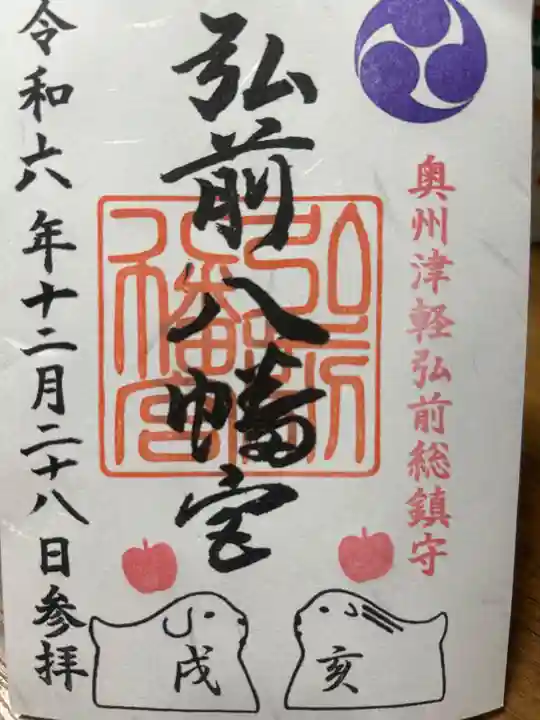 奥州津軽弘前総鎮守
弘前八幡宮
弘前
八幡宮
令和六年十二月二十八日参拝
戌
亥